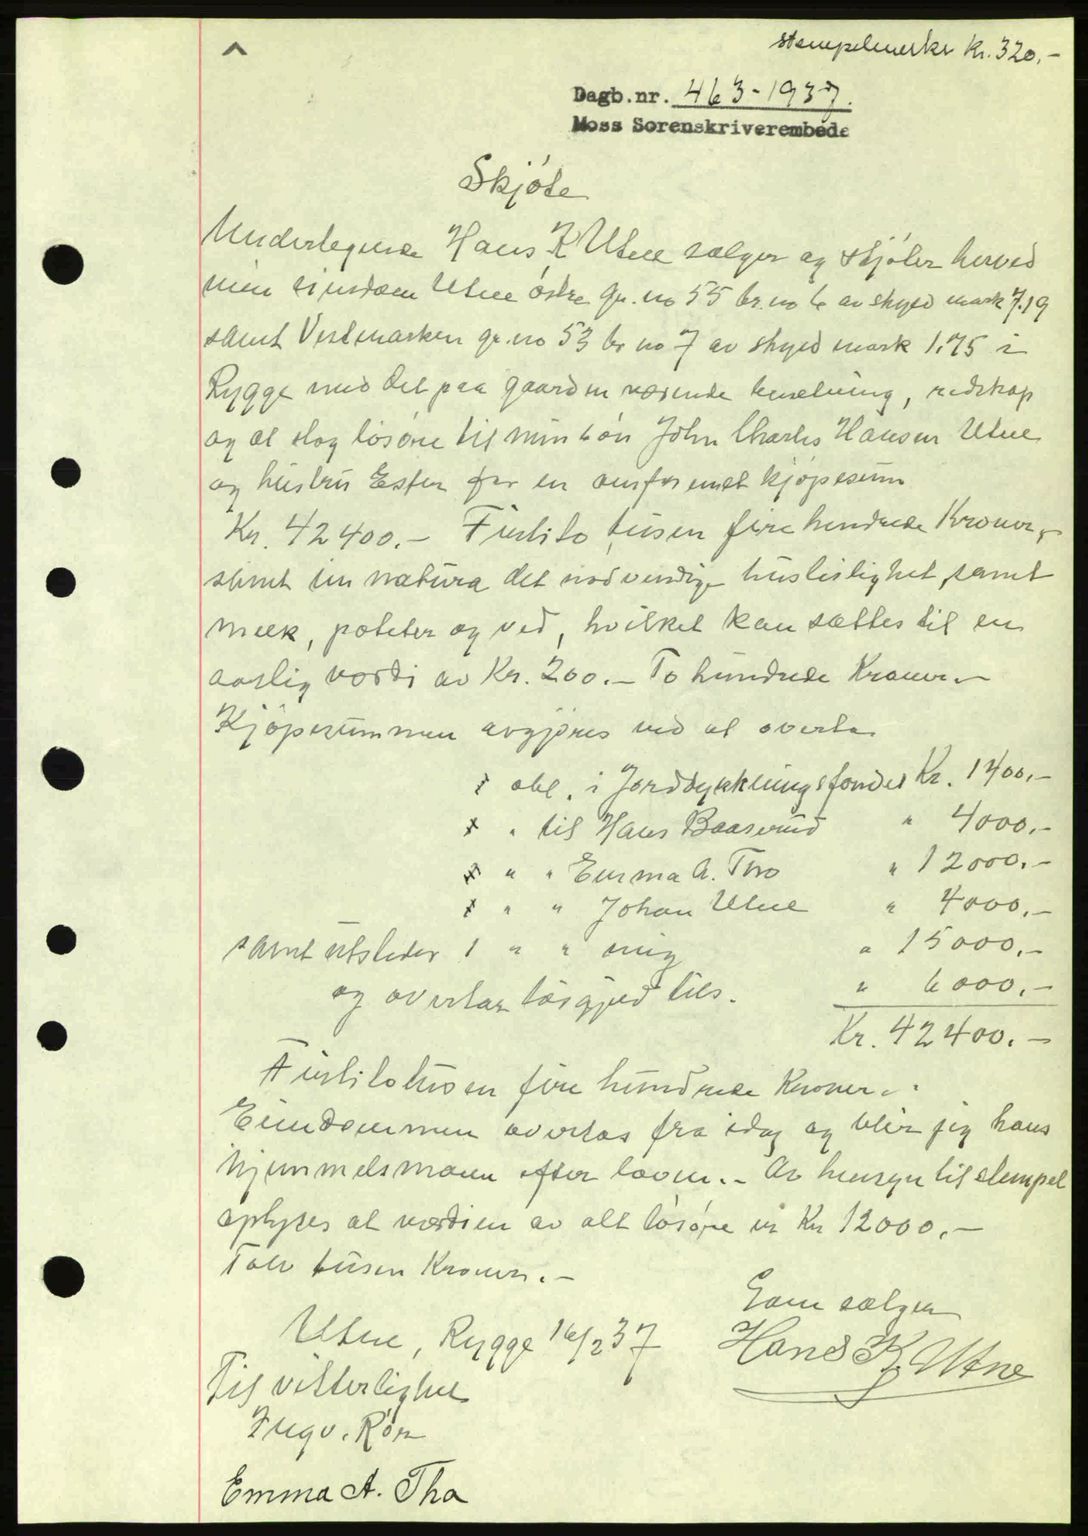 stempelmerke Kr. 320.-
Dagb.nr. 463-1937.
Moss Sorenskriverembede
Skjöte
Undertegnede Hans K Utne sælger og skjöter herved
min eiendom Utne östre gr. no 55 br. no 6 av skyld mark 7.19
samt Vestmarken gr. no 53 br no 7 av skyld mark 1.75 i
Rygge med det paa gaarden værende besetning, redskap
og at slag lösöre til min sön John Charles Hansen Utne
og hustru Ester for en omforenet kjöpesum
Kr. 42400.- Firtito tusen fire hundrede Kroner,-
samt in natura det nödvendige husleilighet, samt
melk, poteter og ved, hvilket kan sættes til en
aarlig værdi av Kr. 200.- To hundrede Kroner.-
Kjöpesummen avgjöres ved at overta
1 obl. i Jorddyrkningsfondet Kr. 1400.-
1 " til Hans Baaserud " 4000.-
" " Emma A. Tho " 12000.-
1 " " Johan Utne " 4000.-
samt utsteder 1 " " mig " 15000.-
og overtar lösgjöd tils. " 6000.-
Kr. 42400.-
Firtitotusen fire hundrede Kroner.-
Eiendommen overtas fra idag og blir jeg hans
hjemmelsmann efter loven.- Av hensyn til stempel
oplyses at værdien av alt lösöre er Kr 12000.-
Tolv tusen Kroner.-
Utne, Rygge 16/2 37
Som sælger
Hans K. Utne
Til vitterlighet
Ingv. Rör
Emma A. Tho